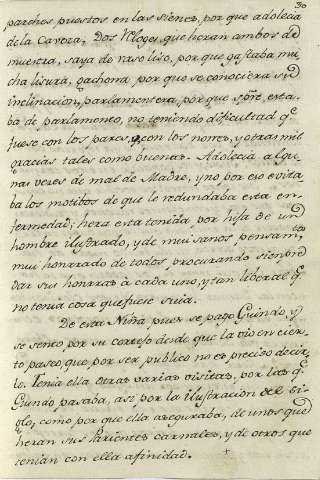 30
parches puestos en las sienes, por que adolecia
de la Caveza; Dos Reloges, que heran ambos de
muestra, saya de raso liso, por que gastaba mu-
cha lisura, gachona por que se conociera su
inclinacion, parlamentera, por que spre. esta-
ba de parlamento, no teniendo dificultad qe.
fuese con los pares, o con los nones, y otras mil
gracias tales como buenas. Adolecia algu-
nas veces de mal de Madre, y no por eso evita
ba los motibos de que le redundaba esta en-
fermedad; hera esta tenida por hija de un
hombre ilustrado, y de mui sanos pensamtos.
mui honrrado de todos, procurando siempre
dar sus honrras à cada uno, y tan liberal q.
no tenia cosa que fuese suia.
De esta Niña pues se pagó Guindo, y
se sento por su cortejo desde que la vio en cier-
to paseo, que por ser publico no es preciso decir-
lo. Tenia ella otras varias visitas, por las q.
Guindo pasaba, asi por la ilustracion del Si-
glo, como por que ella aseguraba, de unos que
heran sus Parientes carnales, y de otros que
tenian con ella afinidad.